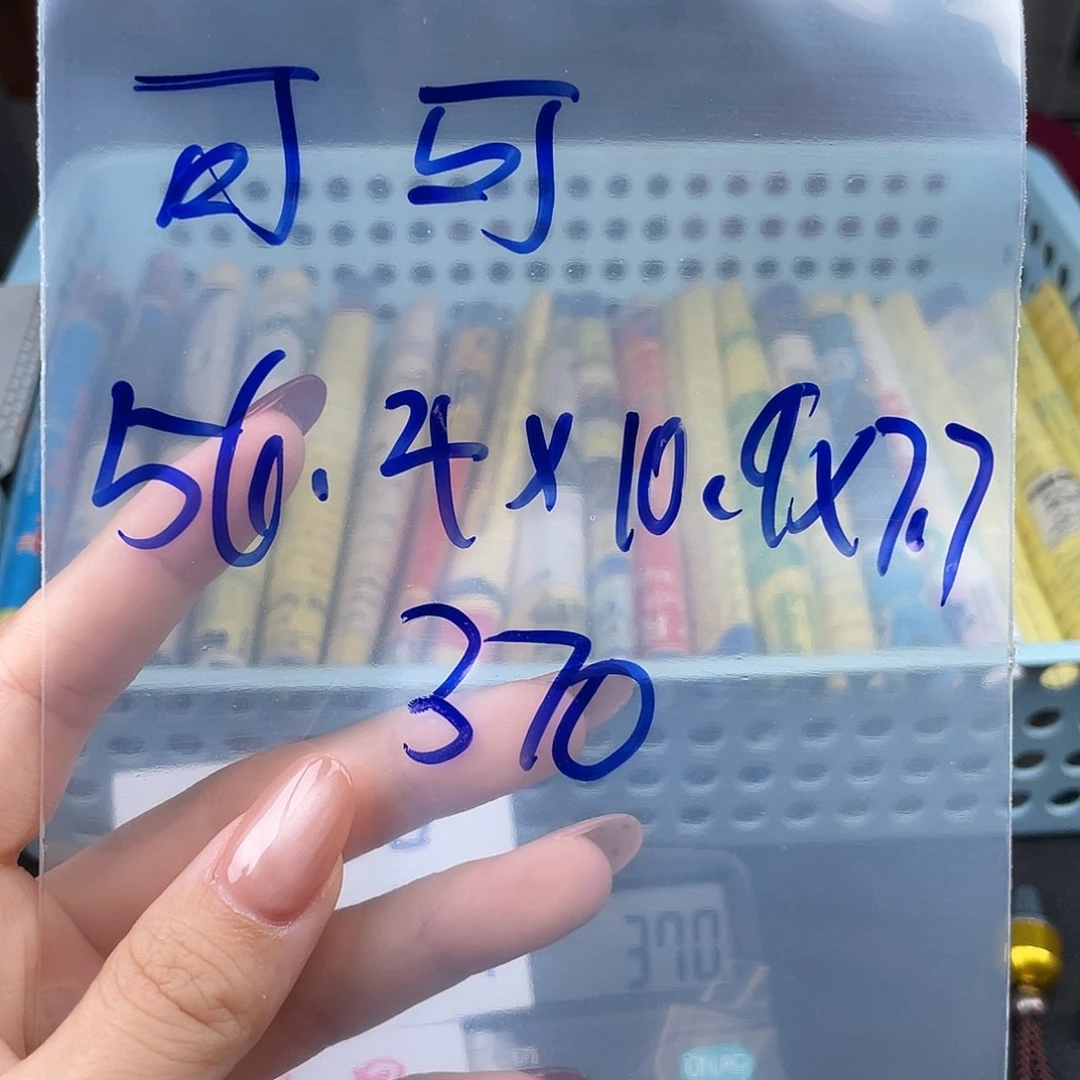 可可
56.4x10.9x7.7
370
370